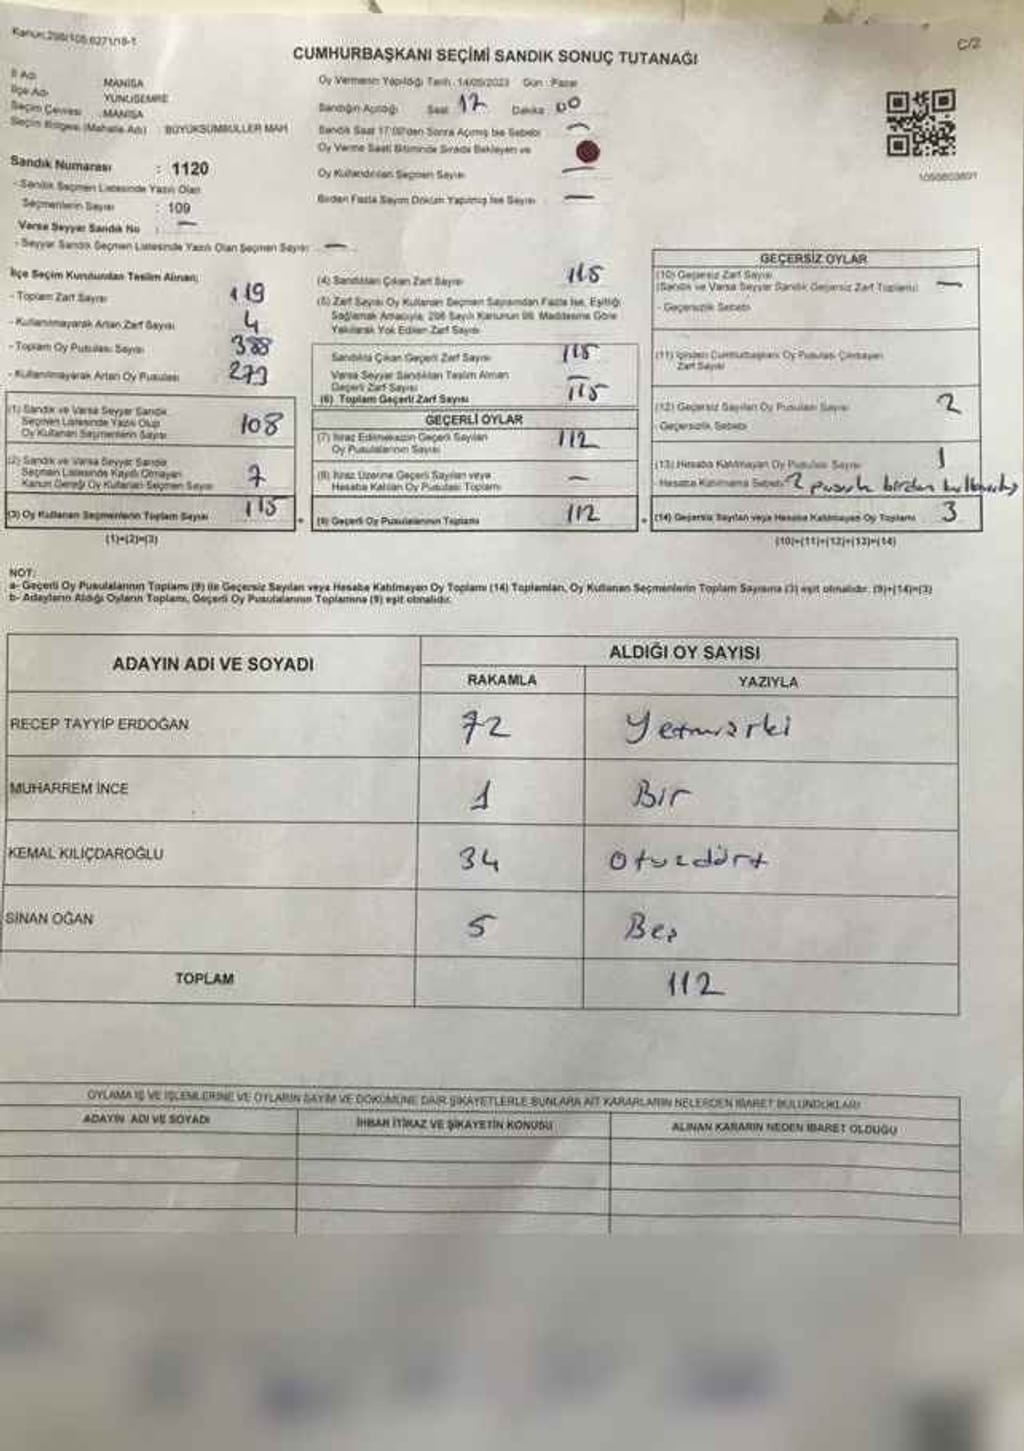 Kanun:298/105,6271/18-1
C/2
CUMHURBAŞKANI SEÇİMİ SANDIK SONUÇ TUTANAĞI
İl Adı MANİSA
İlçe Adı YUNUSEMRE
Seçim Çevresi MANİSA
Seçim Bölgesi (Mahalle Adı) BÜYÜKSÜMBÜLLER MAH
Sandık Numarası : 1120
- Sandık Seçmen Listesinde Yazılı Olan
Seçmenlerin Sayısı : 109
Varsa Seyyar Sandık No : —
- Seyyar Sandık Seçmen Listesinde Yazılı Olan Seçmen Sayısı : —
Oy Vermenin Yapıldığı Tarih : 14/05/2023 Gün : Pazar
Sandığın Açıldığı Saat 17 Dakika 00
Sandık Saat 17:00'den Sonra Açılmış İse Sebebi —
Oy Verme Saati Bitiminde Sırada Bekleyen ve
Oy Kullandırılan Seçmen Sayısı —
Birden Fazla Sayım Döküm Yapılmış İse Sayısı —
1050803801
İlçe Seçim Kurulundan Teslim Alınan;
- Toplam Zarf Sayısı 119
- Kullanılmayarak Artan Zarf Sayısı 4
- Toplam Oy Pusulası Sayısı 388
- Kullanılmayarak Artan Oy Pusulası 273
(1) Sandık ve Varsa Seyyar Sandık
Seçmen Listesinde Yazılı Olup
Oy Kullanan Seçmenlerin Sayısı 108
(2) Sandık ve Varsa Seyyar Sandık
Seçmen Listesinde Kayıtlı Olmayan
Kanun Gereği Oy Kullanan Seçmen Sayısı 7
(3) Oy Kullanan Seçmenlerin Toplam Sayısı 115
(1)+(2)=(3)
(4) Sandıktan Çıkan Zarf Sayısı 115
(5) Zarf Sayısı Oy Kullanan Seçmen Sayısından Fazla İse, Eşitliği
Sağlamak Amacıyla, 298 Sayılı Kanunun 98. Maddesine Göre
Yakılarak Yok Edilen Zarf Sayısı
Sandıkta Çıkan Geçerli Zarf Sayısı 115
Varsa Seyyar Sandıktan Teslim Alınan
Geçerli Zarf Sayısı —
(6) Toplam Geçerli Zarf Sayısı 115
GEÇERLİ OYLAR
(7) İtiraz Edilmeksizin Geçerli Sayılan
Oy Pusulalarının Sayısı 112
(8) İtiraz Üzerine Geçerli Sayılan veya
Hesaba Katılan Oy Pusulası Toplamı —
(9) Geçerli Oy Pusulalarının Toplamı 112
GEÇERSİZ OYLAR
(10) Geçersiz Zarf Sayısı
(Sandık ve Varsa Seyyar Sandık Geçersiz Zarf Toplamı) —
- Geçersizlik Sebebi
(11) İçinden Cumhurbaşkanı Oy Pusulası Çıkmayan
Zarf Sayısı
(12) Geçersiz Sayılan Oy Pusulası Sayısı 2
- Geçersizlik Sebebi
(13) Hesaba Katılmayan Oy Pusulası Sayısı 1
- Hesaba Katılmama Sebebi 2 pusula birden
(14) Geçersiz Sayılan veya Hesaba Katılmayan Oy Toplamı 3
(10)+(11)+(12)+(13)=(14)
NOT:
a- Geçerli Oy Pusulalarının Toplamı (9) ile Geçersiz Sayılan veya Hesaba Katılmayan Oy Toplamı (14) Toplamları, Oy Kullanan Seçmenlerin Toplam Sayısına (3) eşit olmalıdır. (9)+(14)=(3)
b- Adayların Aldığı Oyların Toplamı, Geçerli Oy Pusulalarının Toplamına (9) eşit olmalıdır.
ADAYIN ADI VE SOYADI
ALDIĞI OY SAYISI
RAKAMLA YAZIYLA
RECEP TAYYİP ERDOĞAN 72 Yetmişiki
MUHARREM İNCE 1 Bir
KEMAL KILIÇDAROĞLU 34 Otuzdört
SİNAN OĞAN 5 Beş
TOPLAM 112
OYLAMA İŞ VE İŞLEMLERİNE VE OYLARIN SAYIM VE DÖKÜMÜNE DAİR ŞİKAYETLERLE BUNLARA AİT KARARLARIN NELERDEN İBARET BULUNDUKLARI
ADAYIN ADI VE SOYADI
İHBAR İTİRAZ VE ŞİKAYETİN KONUSU
ALINAN KARARIN NEDEN İBARET OLDUĞU